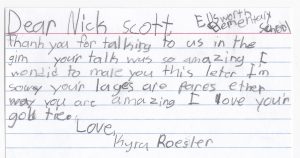 Dear Nick scott,
Ellsworth
Elementary
School
Thank you for talking to us in the
gim your talk was so amazing I
wontid to make you this leter I'm
sorry your lages are pares ether
way you are amazing I love your
gold tice.
Love,
Kyra Roesler